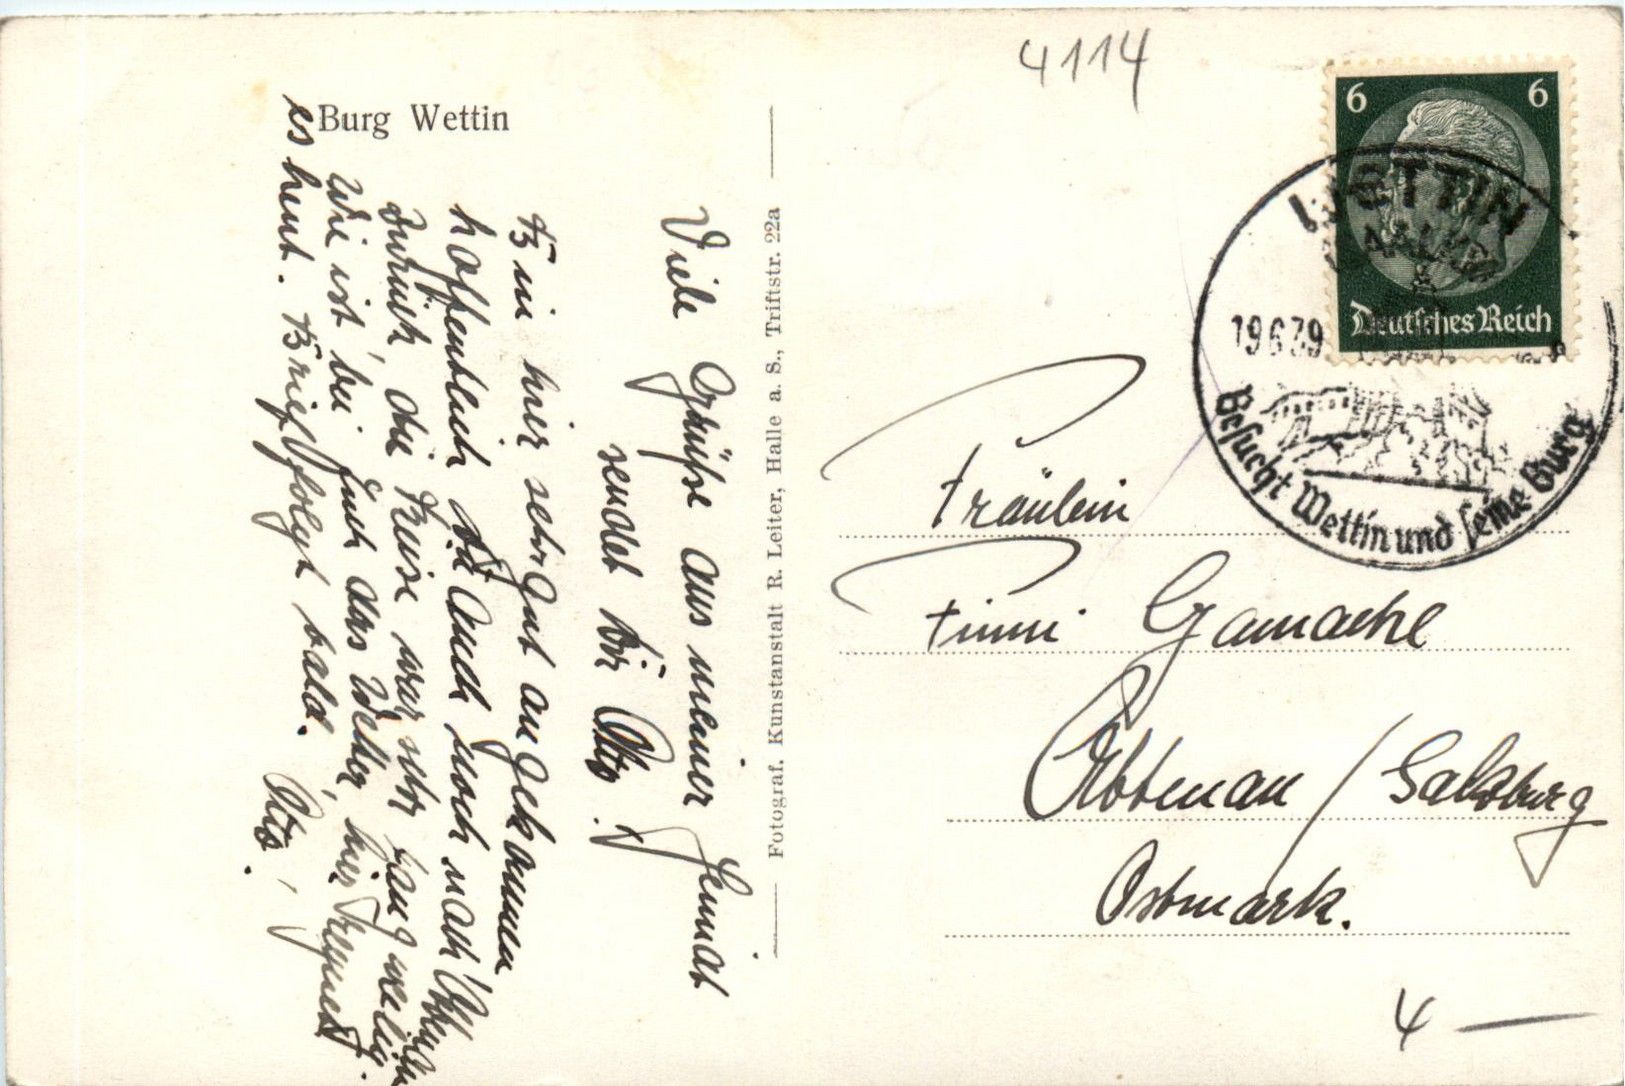 4114
Burg Wettin
6 6
Deutsches Reich
WETTIN
SAALKR
19.6.39
Besucht Wettin und seine Burg
Viele Grüße aus meiner Heimat
sendet Dir Otto.
Bin hier sehr gut angekommen
hoffentlich Du auch noch nach
zurück, die Reise war sehr langweilig.
Wie ist bei Euch das Wetter, hier regnet
es heut. Brief folgt bald.
Otto.
Fotograf. Kunstanstalt R. Leiter, Halle a. S., Triftstr. 22a
Fräulein
Finni Gamache
Abtenau / Salzburg
Ostmark.
4 —